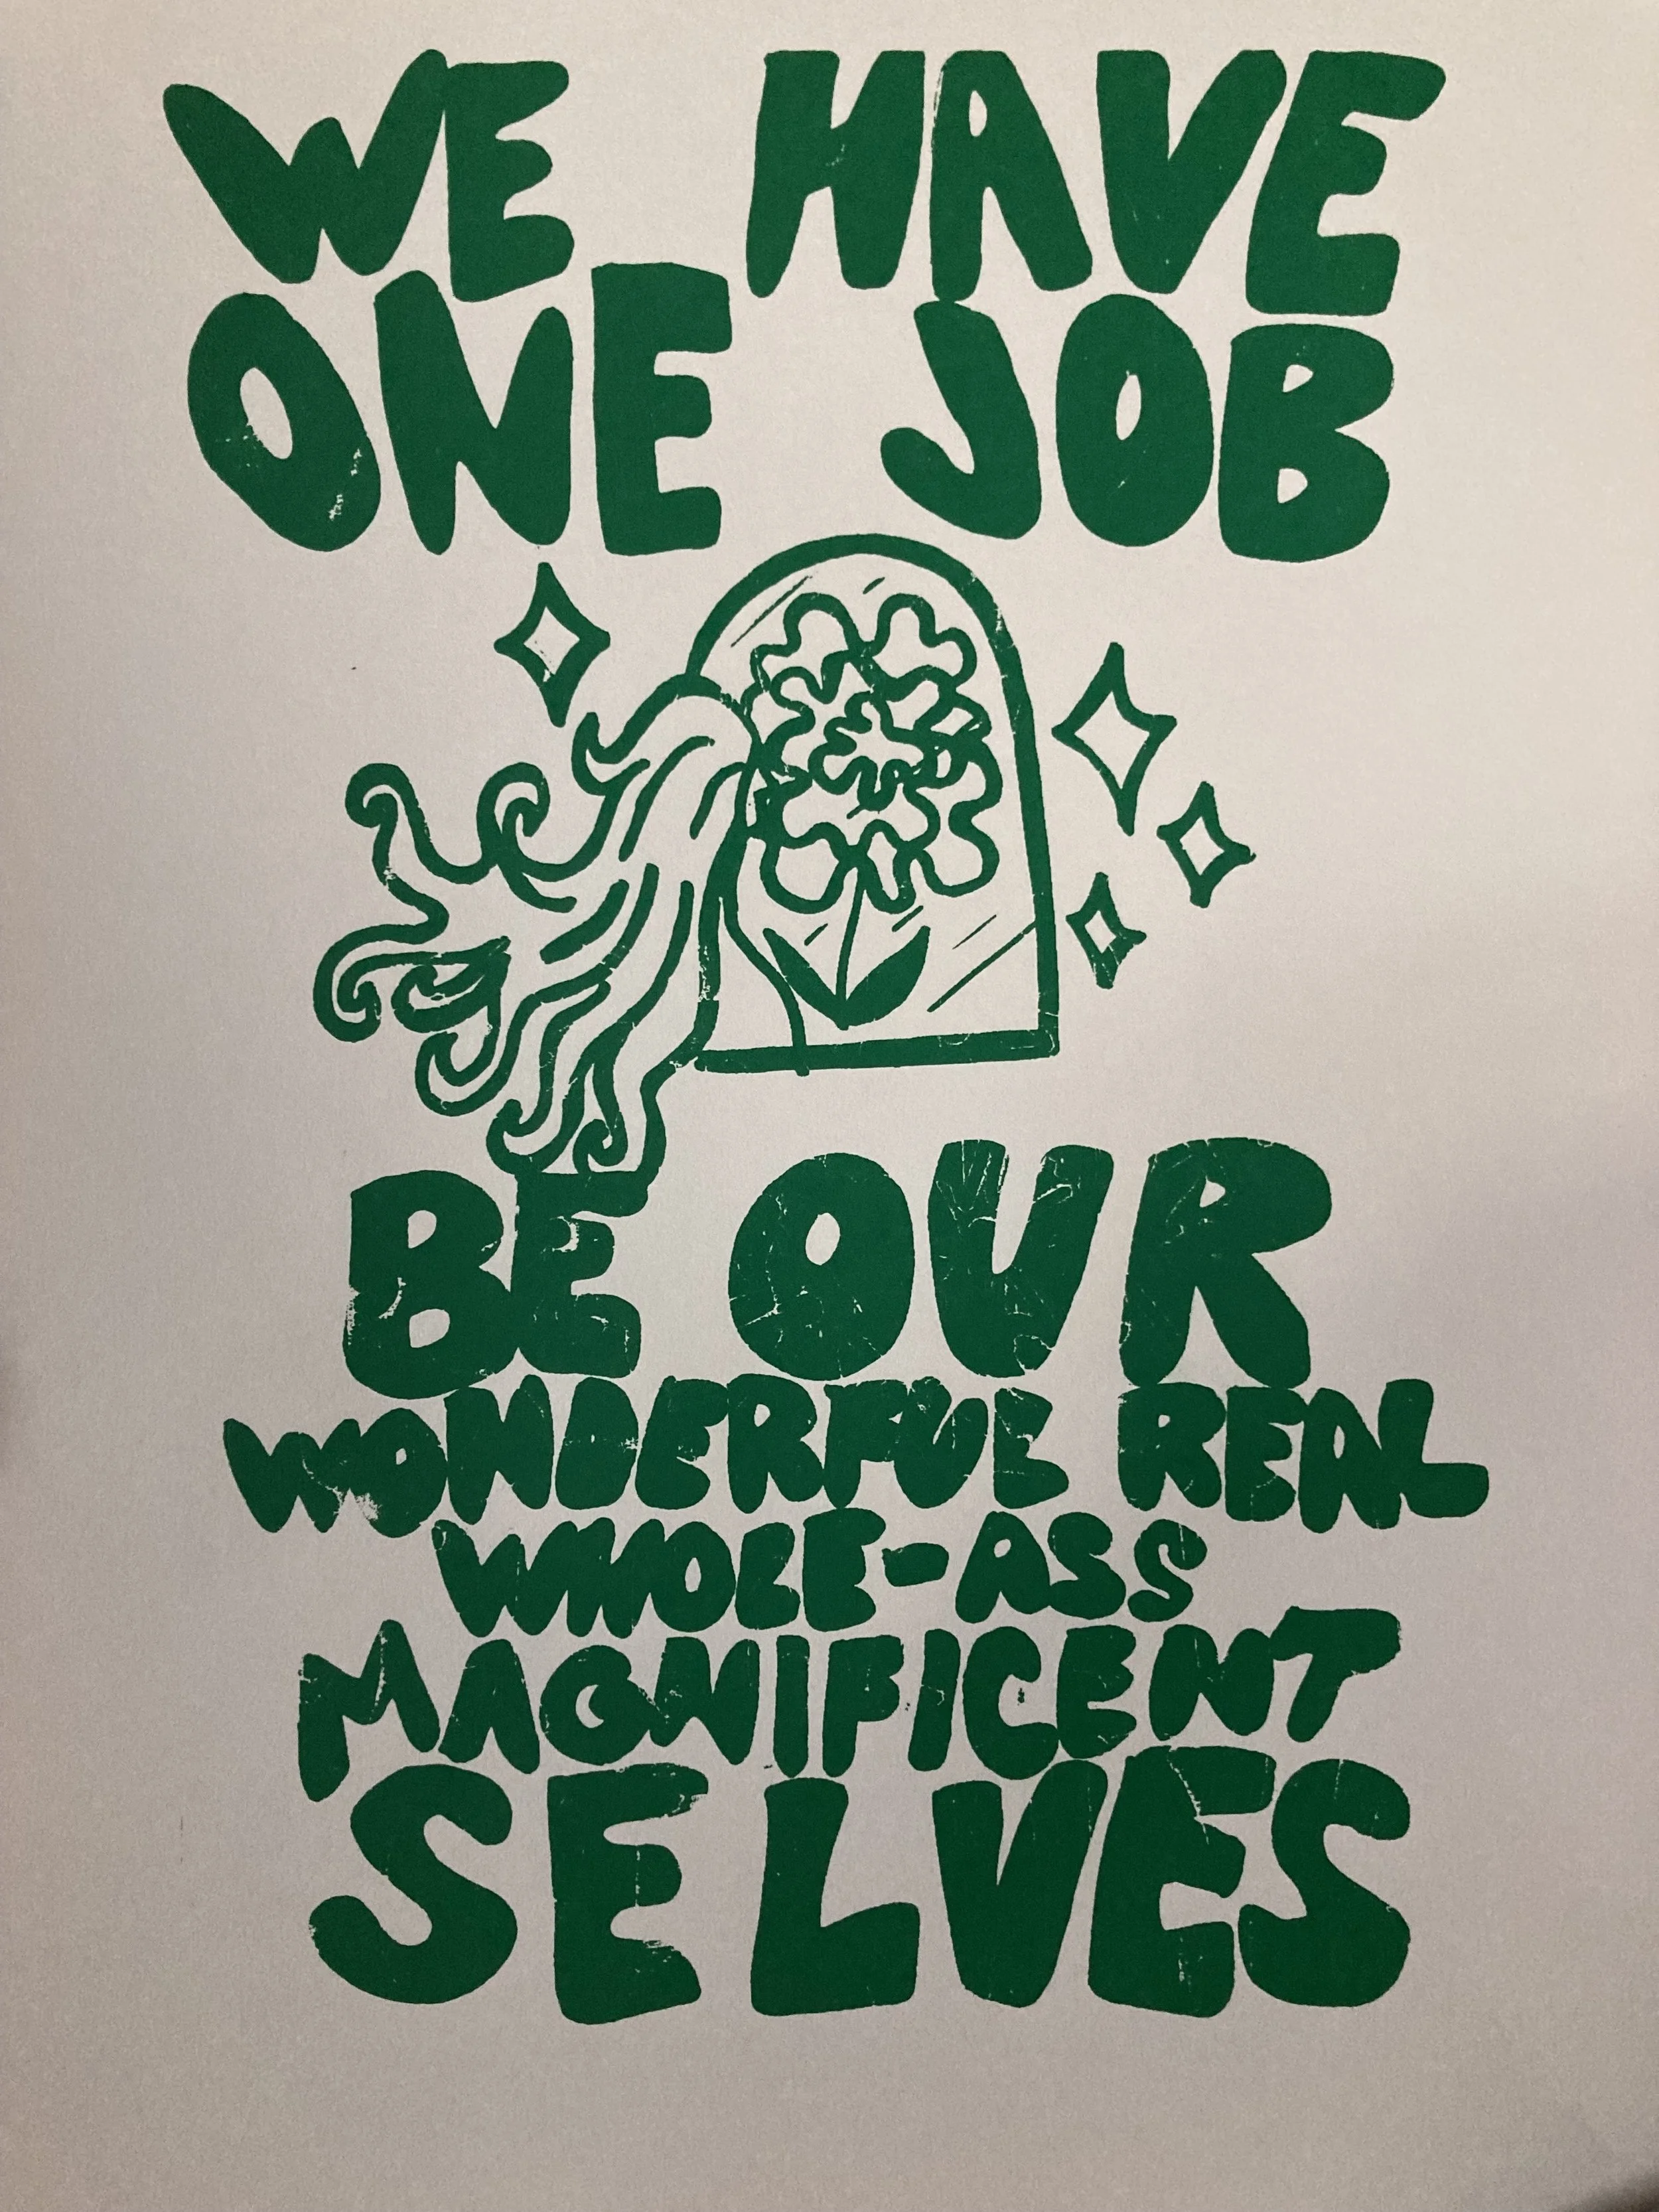 WE HAVE
ONE JOB
BE OUR
WONDERFUL REAL
WHOLE-ASS
MAGNIFICENT
SELVES